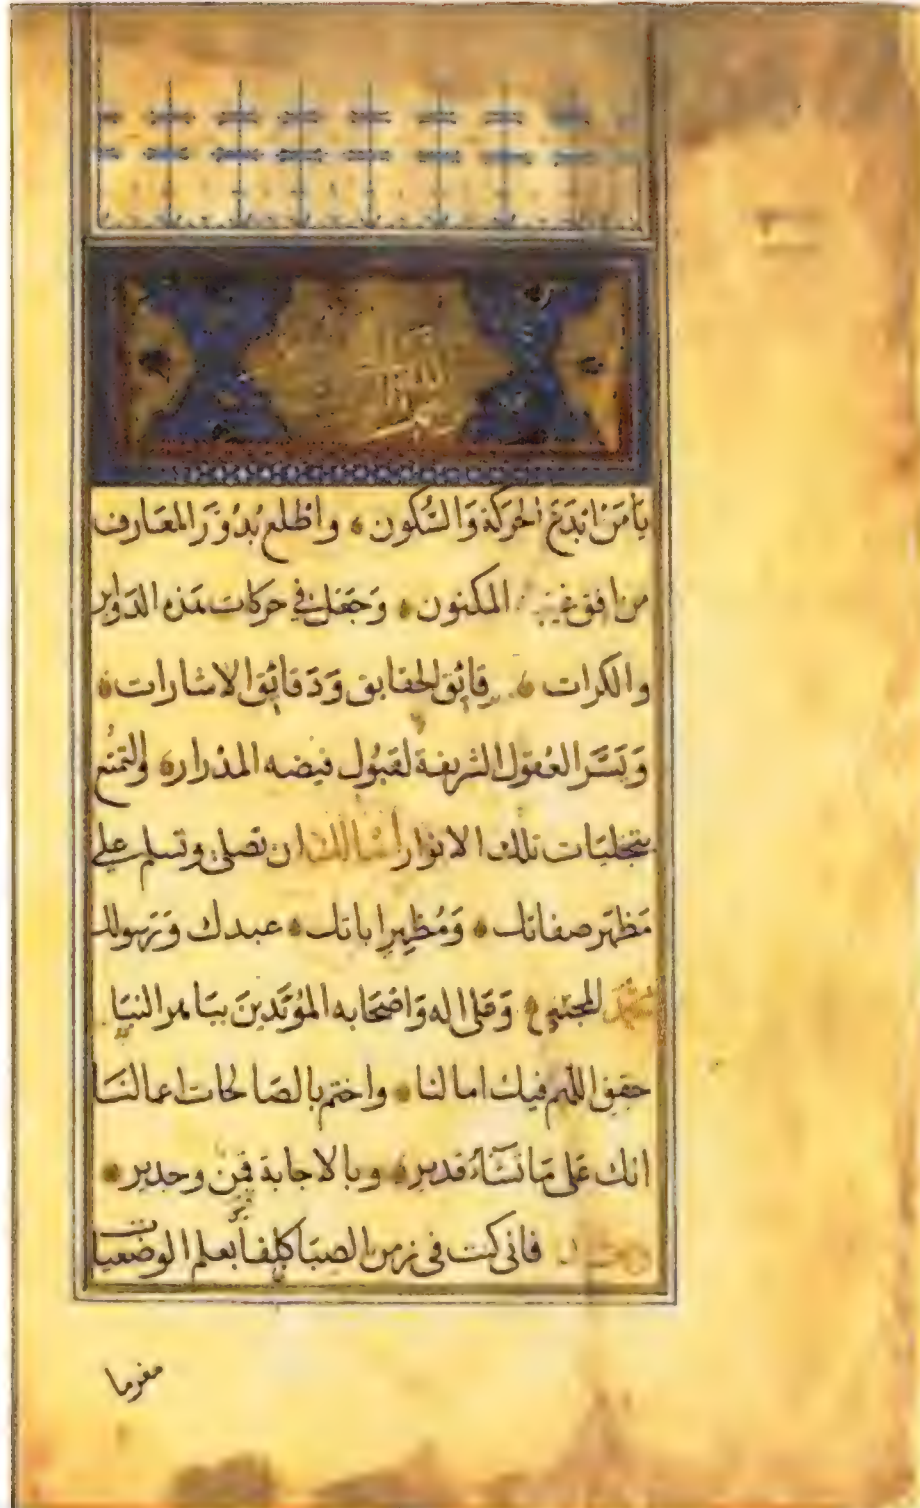 بسم الله
يَا مَنْ ابْدَعَ الحَرَكَةَ وَالسُّكون واطلع بُدُوْرَ المعَارف
من افق غيبه المكنون وَجَعَل في حركات هذه الدَواير
والكرات رقائق الحقايق وَدَقائق الاشارات
وَيَسَّر العُقول الشريفة لقَبُول فيضه المدْرار والتمتع
بتجليات تلك الانوار أسالك ان تصلي وتسلم على
مَظهَر صفاتك وَمُظهِر اياتك عبدك وَرَسولك
محمد المجتبى وَعَلى اله وَاصْحَابه المُؤيَّدينَ
حقق اللهم فيك امالنا واختم بالصَالحات اعمالنَا
انك عَلى مَا تشَآءُ قدير وبالاجابة قمن وجدير
وبعد فانى كنت فى زمن الصبَا كلِفاً بعلم الوضعيات
مغرما